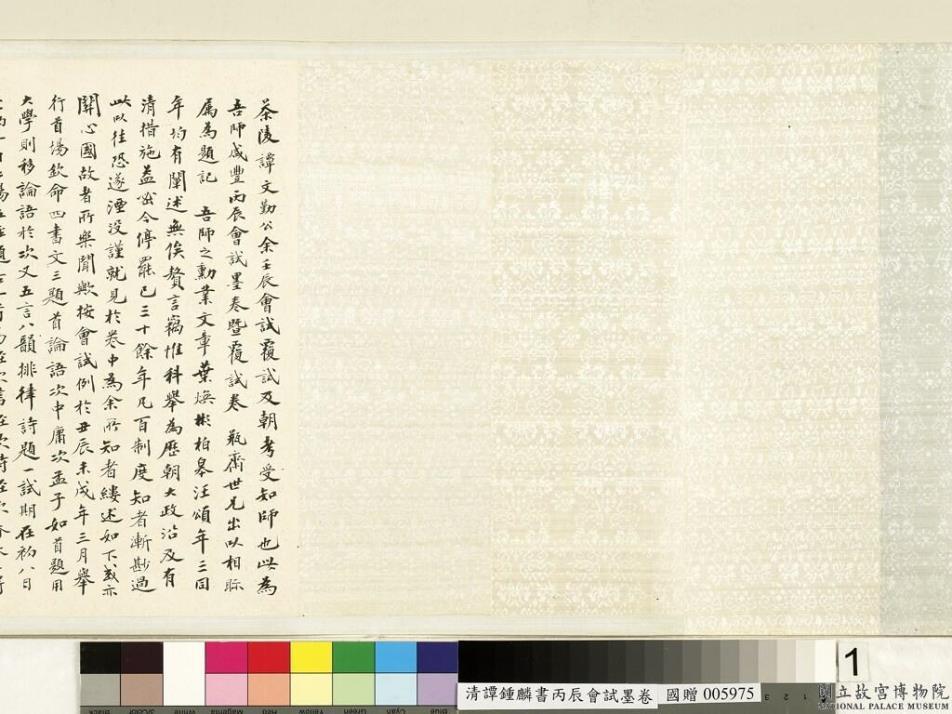 茶陵譚文勤公余壬辰會試覆試及朝考受知師也此為
吾師咸豐丙辰會試墨卷暨覆試卷 瓶齋世兄出以相眎
属為題記 吾師之勳業文章葉煥彬柏皋汪頌年三同
年均有闡述無俟贅言竊惟科舉為歷朝大政沿及有
清措施益密今停罷已三十餘年凡百制度知者漸尠過
此以往恐遂湮没謹就見於卷中為余所知者縷述如下或亦
關心國故者所樂聞歟按會試例於丑辰未戌年三月舉
行首場欽命四書文三題首論語次中庸次孟子如首題用
大學則移論語於次又五言八韻排律詩題一試期在初八日
清譚鍾麟書丙辰會試墨卷 國贈 005975
1
國立故宮博物院
NATIONAL PALACE MUSEUM
Black 3/Color Magenta Red Yellow Green Cyan Blue